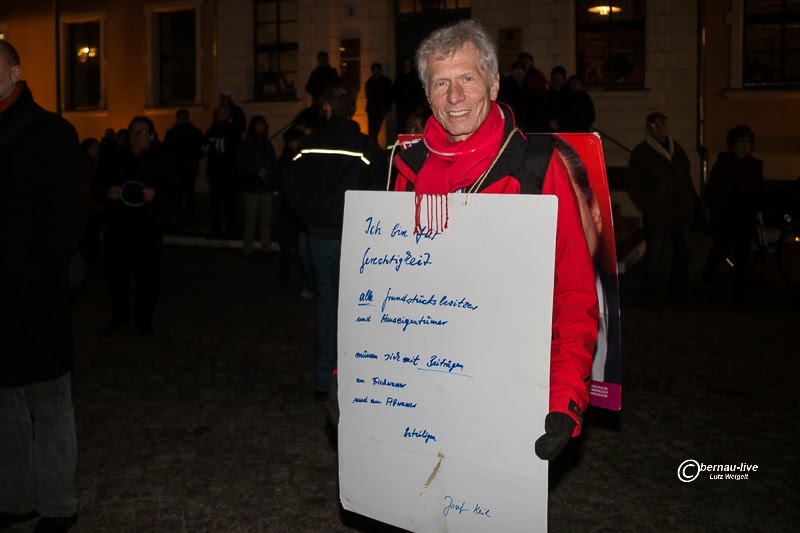 Ich bin für
Gerechtigkeit
alle Grundstücksbesitzer
und Hauseigentümer
müssen sich mit Beiträgen
an Frischwasser
und an Abwasser
beteiligen
Josef Keil
© bernau-live
Lutz Weigelt